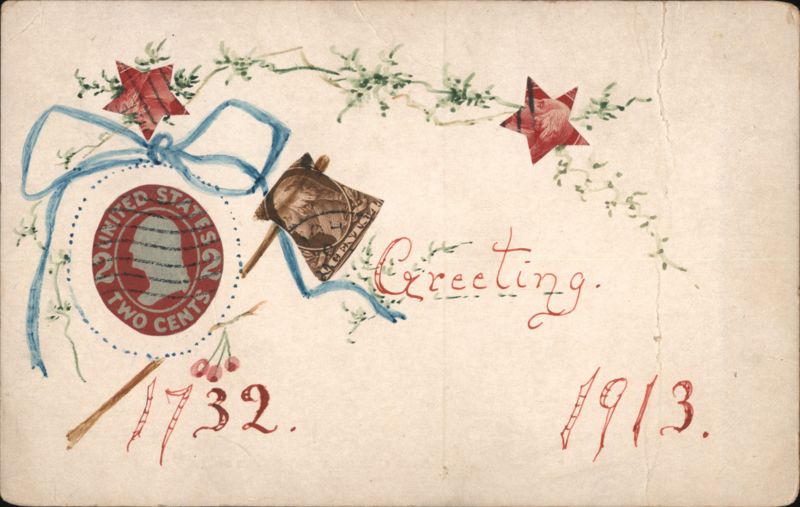 UNITED STATES
2 2
TWO CENTS
Greeting.
1732.
1913.